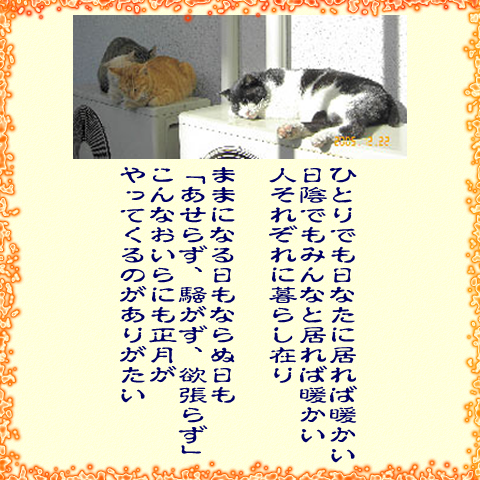 2005 2.22
ひとりでも日なたに居れば暖かい
日陰でもみんなと居れば暖かい
人それぞれに暮らし在り
ままになる日もならぬ日も
「あせらず、騒がず、欲張らず」
こんなおいらにも正月が
やってくるのがありがたい